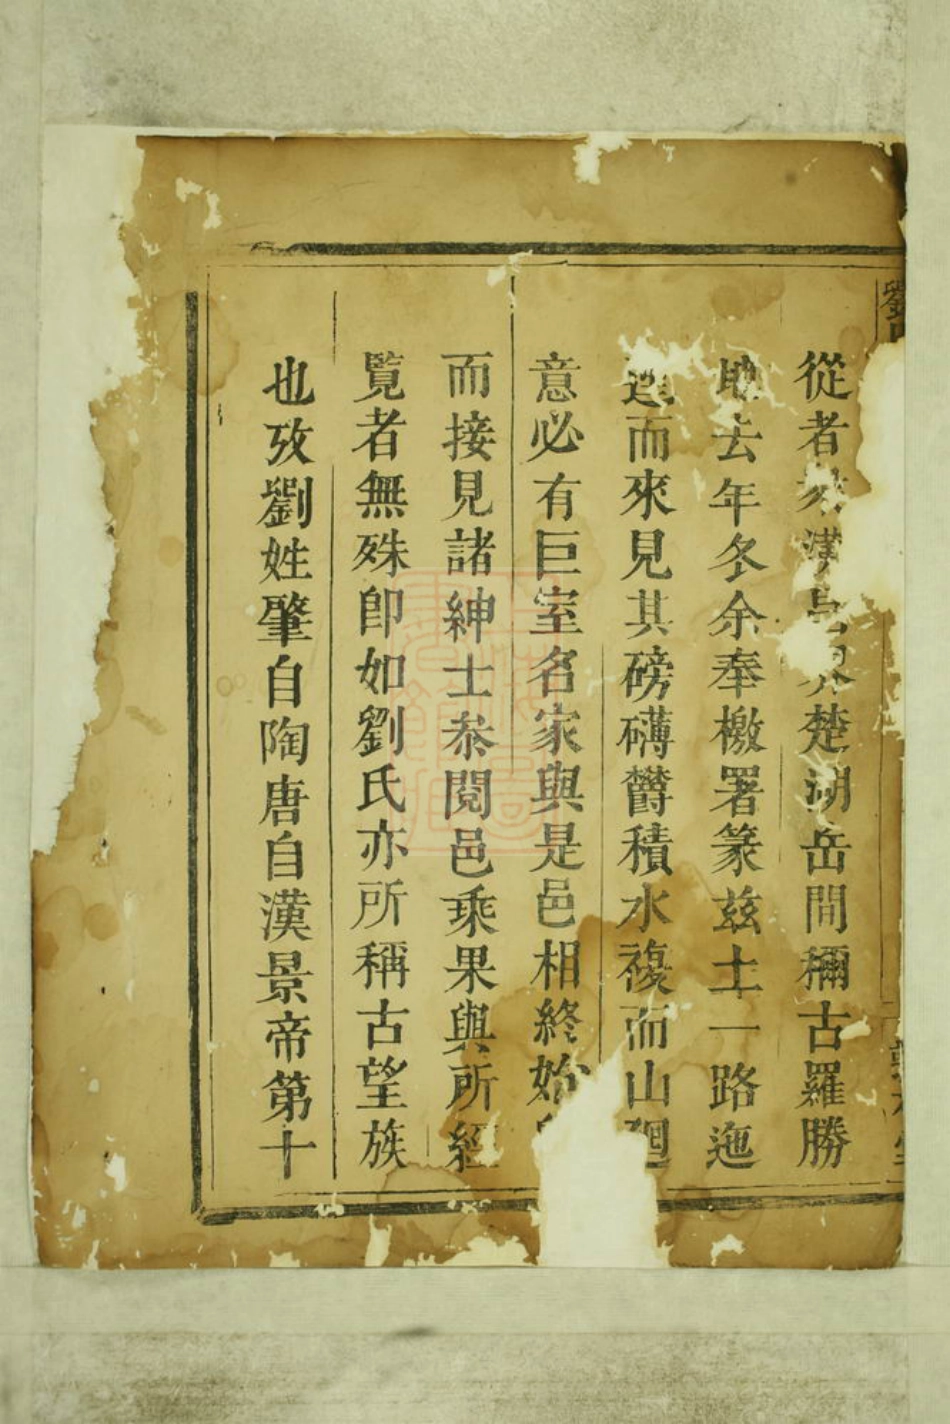 劉
從者楚湖岳間稱古羅勝
地去年冬余奉檄署篆兹土一路迤
邐而來見其磅礴欝積水複而山廻
意必有巨室名家與是邑相終始
而接見諸紳士叅閱邑乘果與所經
覧者無殊即如劉氏亦所稱古望族
也攷劉姓肇自陶唐自漢景帝第十